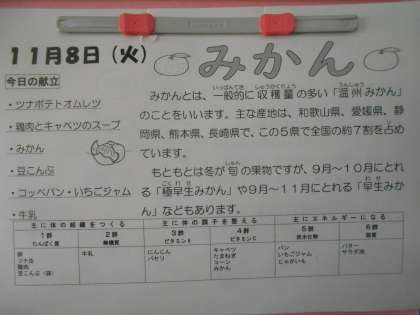 11月8日（火）
みかん
今日の献立
・ツナポテトオムレツ
・鶏肉とキャベツのスープ
・みかん
・豆こんぶ
・コッペパン・いちごジャム
・牛乳
みかんとは、一般的に収穫量の多い「温州みかん」
のことをいいます。主な産地は、和歌山県、愛媛県、静
岡県、熊本県、長崎県で、この5県で全国の約7割を占め
ています。
もともとは冬が旬の果物ですが、9月～10月にとれ
る「極早生みかん」や9月～11月にとれる「早生みか
ん」などもあります。
主に体の組織をつくる 主に体の調子を整える 主にエネルギーになる
1群 2群 3群 4群 5群 6群
たんぱく質 無機質 ビタミンA ビタミンC 炭水化物 脂質
卵 牛乳 にんじん キャベツ パン バター
ツナ缶 パセリ たまねぎ いちごジャム サラダ油
鶏肉 コーン じゃがいも
豆こんぶ（袋） みかん